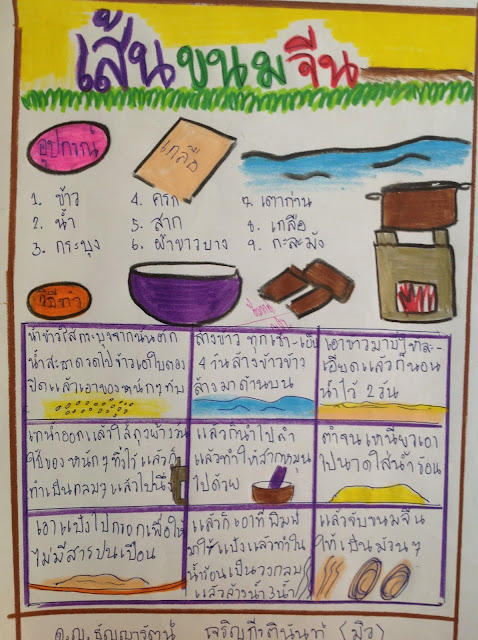 เส้นขนมจีน
อุปกรณ์
เกลือ
1. ข้าว
2. น้ำ
3. กระบุง
4. ครก
5. สาก
6. ผ้าขาวบาง
7. เตาถ่าน
8. เกลือ
9. กะละมัง
วิธีทำ
นำข้าวใส่กระบุงจากนั้นตัก
น้ำสะอาดราดไปข้าวเอาใบตอง
ปิดแล้วเอาของหนักๆทับ
ล้างข้าว ทุกเช้า-เย็น
4 วันล้างข้าวข้าว
ล้างมาด้านบน
เอาข้าวมาบดให้ละ-
เอียดแล้วก็นอน
น้ำไว้ 2 วัน
เทน้ำออกแล้วใส่ถุงผ้าวัน
ใช้ของ หนักๆ ทิ้งไว้ แล้วก็
ทำเป็นกลมๆ แล้วไปนึ่ง
แล้วก็นำไปตำ
แล้วทำให้สากหมุน
ไปด้วย
ตำจนเหนียวเอา
ไปนวดใส่น้ำร้อน
เอาแป้งไปกรองเพื่อให้
ไม่มีสารปนเปื้อน
แล้วก็เอาที่พิมพ์
มาใช้แป้งแล้วทำใน
น้ำร้อนเป็นวงกลม
แล้วล้างน้ำ 3 น้ำ
แล้วจับขนมจีน
ให้เป็นม้วนๆ
ด.ญ.ธัญญารัตน์ เจริญกีรตินันท์ (มิว)